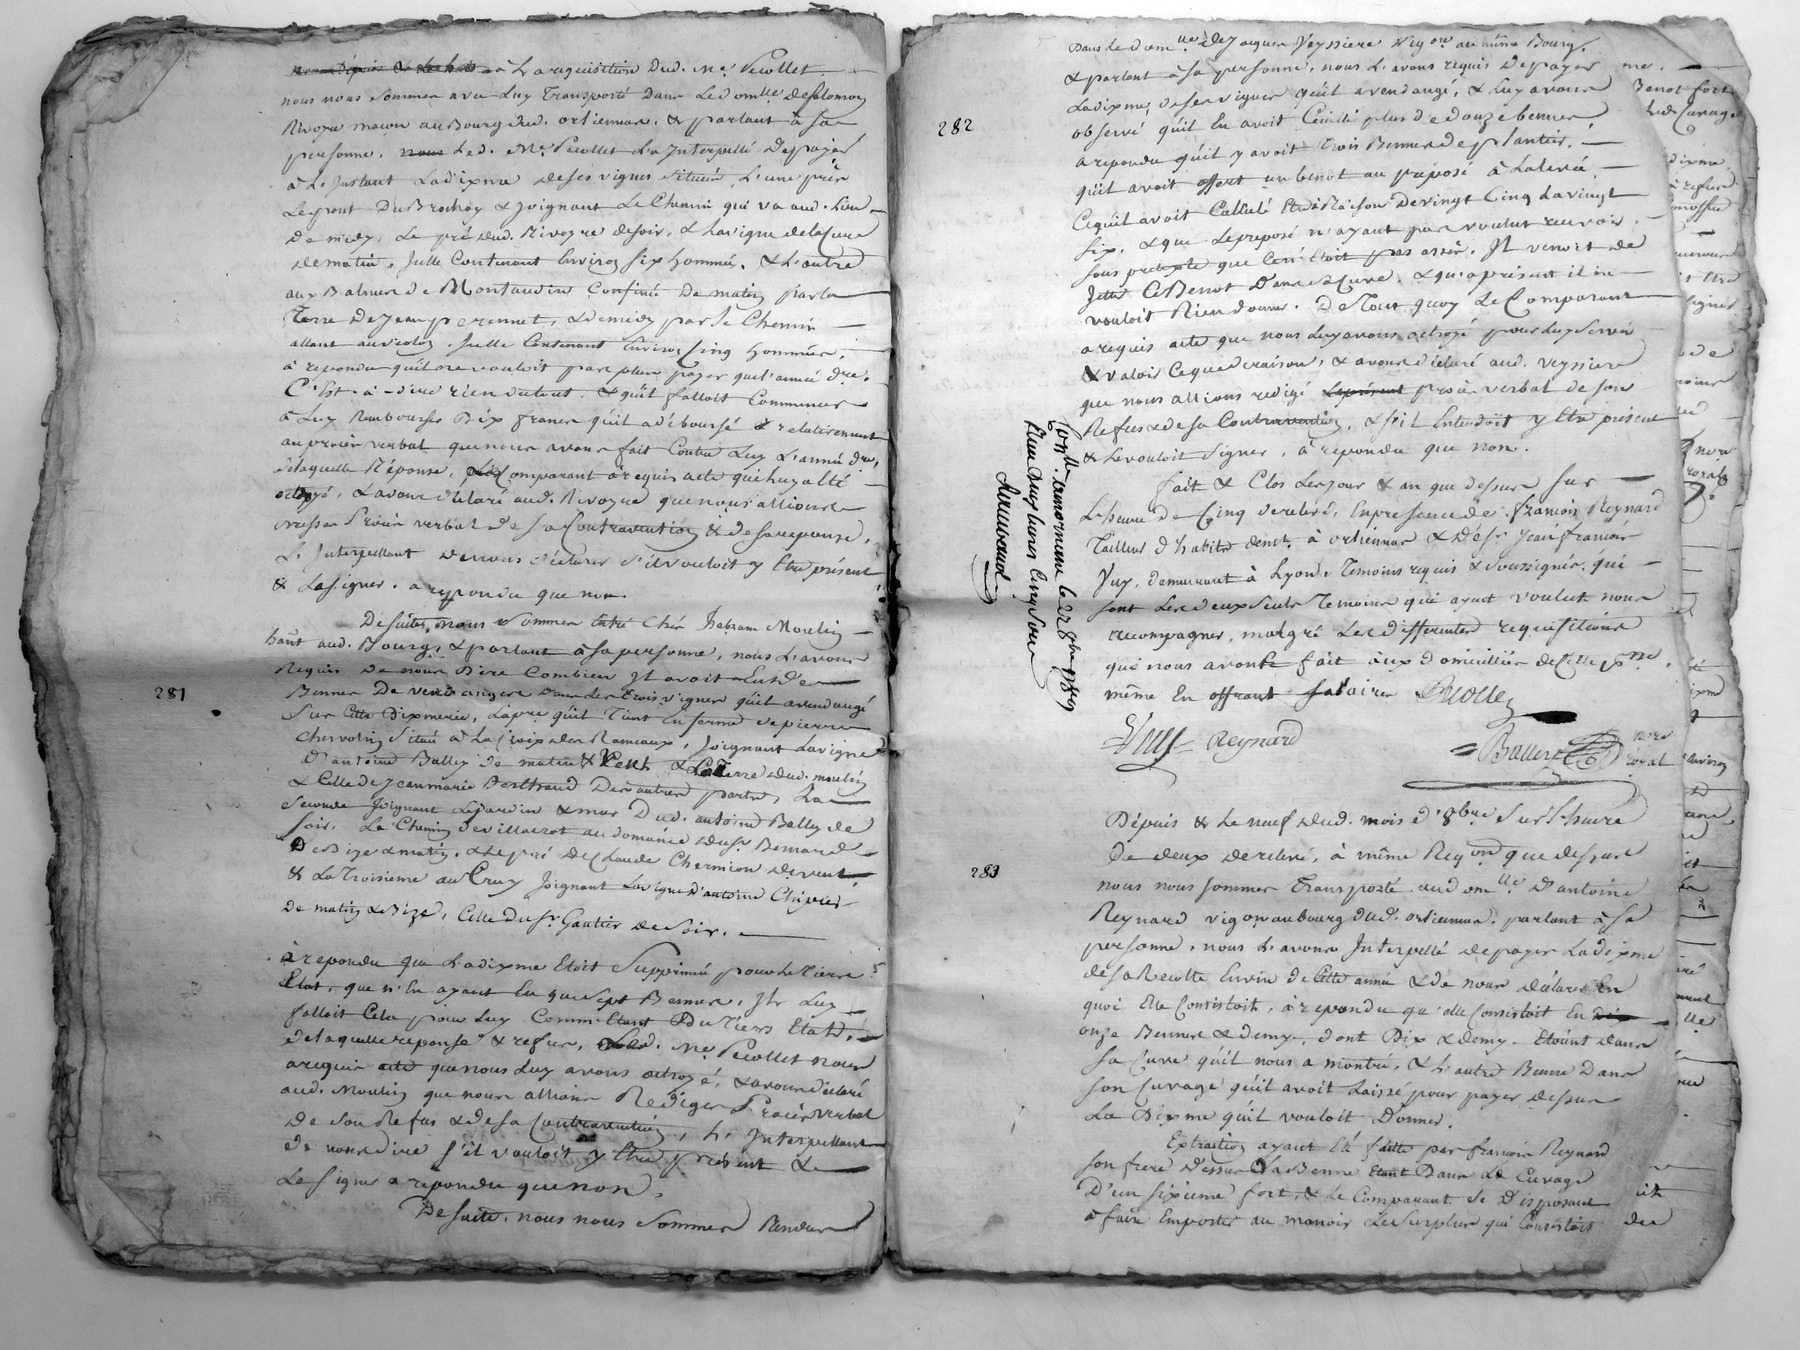 à La requisition Dud. Me. Pecollet
nous nous sommes avec Luy Transporté Dans Le domlle de Salomon
Rivoyre macon au Bourg dud. orliennas. & parlant à sa
personne. nous Led. Me. Pecollet L'a Interpellé de payer
à L'Instant La dixme de ses vignes située, L'une près
Le pont Du & joignant Le Chemin qui va aud. Lieu
De midy, Le pré dud. Rivoyre de soir, & La vigne de la Cure
de matin, Icelle Contenant Environ six hommées. & L'autre
aux Balmes de Montaudin Confinée De matin par la
Terre de Jean perennet, & de midy par Le Chemin
allant au Icelle Contenant Environ Cinq hommées,
à repondu qu'il ne vouloit pas plus payer que l'année dre.
C'est-à-dire rien du tout, & qu'il falloit Commencer
à Luy Rembourser Dix francs qu'il a déboursé relativement
au procès verbal que nous avons fait Contre Luy L'année dre,
de laquelle Réponse, Le Comparant à requis acte qui luy a été
octroyé, & avons déclaré aud. Rivoyre que nous allions
dresser Procès verbal de sa Contravention & de sa reponse,
L'Interpellant de nous déclarer s'il vouloit y Etre présent
& La signer. a repondu que non.
De suitte, nous sommes Entré chés habram Moulin
hant aud. Bourg, & parlant à sa personne, nous L'avons
Requis De nous Dire Combien Il avoit Eu de
281
Bennes De vendanges dans les trois vignes qu'il a vendangé
sur Cette Dixmerie, La pre. qu'il Tient En ferme de pierre
Chervolin située à La Croix des Rameaux, joignant La vigne
D'antoine Balley de matin & vent & La Terre dud. moulin
& Celle de Jean marie Berthaud Des autres parts, La
seconde joignant Le jardin & mas Dud. antoine Balley de
soir, Le Chemin de au domaine du sr. Bernard
De Bize & matin, & Le pré De Claude Chermion de vent,
& La Troisieme au Cruy joignant La vigne d'antoine
De matin & Bize, Celle du Sr. Gautier de soir.
à repondu que La dixme Etoit Supprimée pour Le Tiers
Etat, que n'En ayant Eu que sept Bennes, Ils Luy
falloit Cela pour Luy Comme Etant Du Tiers Etat,
de laquelle reponse & refus, Led. Me. Pecollet nous
a requis acte que nous Luy avons octroyé, & avons déclaré
aud. Moulin que nous allions Rediger Procès verbal
De son Refus & de sa Contravention, L'Interpellant
de nous dire s'il vouloit y Etre présent &
La signer a repondu que non.
De suitte, nous nous sommes Rendus
Dans Le domlle. de Jacques Veyssiere vigon au même Bourg,
& parlant à sa personne, nous L'avons requis de payer
La dixme de ses vignes qu'il a vendangé, & Luy avons
282
observé qu'il En avoit Cueilli plus de douze bennes
a repondu qu'il y avoit trois Bennes de plantier,
qu'il avoit offert un benot au préposé à La Levée,
Ce qu'il avoit Calculé Etre à Raison De vingt Cinq La vingt
six, & que Le preposé n'ayant pas voulut recevoir
sous pretexte que Cen' Etoit pas assés, Il venoit de
Jetter Ce Benot Dans sa Cuve, & qu'a présent il ne
vouloit Rien donner. De Tout quoy Le Comparant
a requis acte que nous Luy avons octroyé pour Luy Servir
& valoir Ce que de raison, & avons déclaré aud. Veyssiere
que nous allions redigé procès verbal de son
Refus & de sa Contravention, & s'il Entendoit y Etre présent
& Le vouloit signer, a repondu que non.
fait & Clos Les jour & an que dessus sur
L'heure de Cinq de relevé, En presence de françois Reynard
Tailleur d'habits demt. à orliennas & De sr. Jean françois
Puy, demeurant à Lyon, Temoins requis & soussignés, qui
sont Les deux seuls Temoins qui ayent voulut nous
accompagner, malgré Les differentes requisitions
que nous avons fait aux domiciliés de Cette psse.
même En offrant salaires Pecollet
Puy Reynard
Ballet royal
Conlle. a mornant le 22 8bre 1789
Reçu deux livres cinq sous
Depuis & Le neuf dud. mois d'8bre sur L'heure
De deux de relevé, à même Reqon que dessus
283
nous nous sommes Transporté aud omlle D'antoine
Reynard vigon au bourg dud. orliennas. parlant à sa
personne, nous L'avons Interpellé de payer La dixme
de sa Recolte En vin de Cette année & de nous déclarer En
quoi Elle Consistoit, à repondu qu'elle Consistoit En
onze Bennes & demy, dont Dix & demy Etoint dans
sa Cuve qu'il nous a montré, & L'autre Benne Dans
son Cuvage qu'il avoit Laissé pour payer dessus
La Dixme qu'il vouloit Donner.
Extraction ayant Eté faitte par françois Reynard
son frere dessus La Benne Etant Dans Le Cuvage
D'un sixieme fort, & Le Comparant se disposant
à faire Emporter au manoir Le surplus qui Consistoit